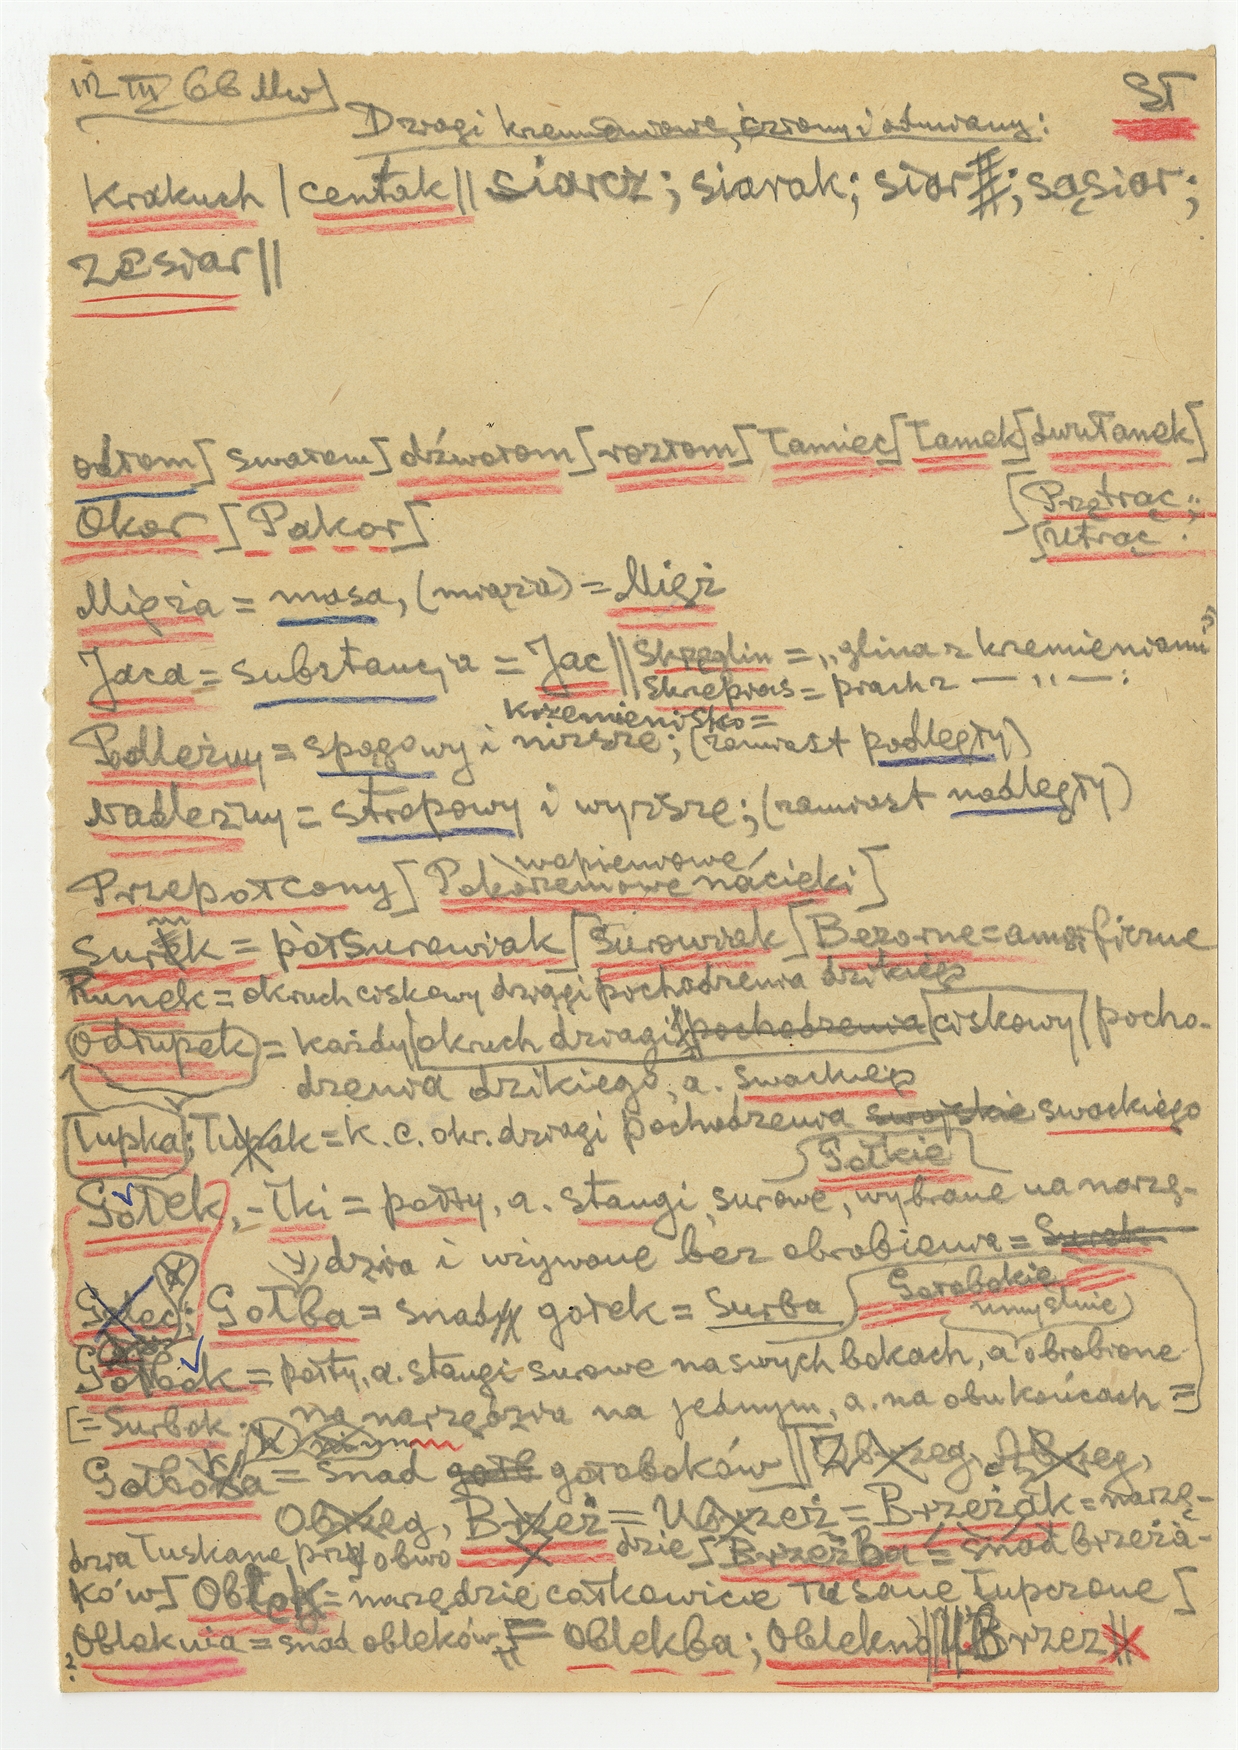 III 66 Mw]
ST
Dziagi krzemieniowe, człony i odmiany:
Krakuch | centłak || siarcz; siarak; siar; sąsiar;
zesiar ||
odłom] swałom] dźwołom] rozłom] łamiec] łamek] dwułamek]
[Przetrąc;
Okor [Pakor]
[Utrąc.
Mięża = masa, (miąża) = Mięż
Jaca = substancja = Jac || Skręglin = „glina z krzemieniami"
Skreprас = prach z — „ —:
Krzemienisko =
Podleżny = spągowy i niższe; (zamiast podległy)
Nadleżny = stropowy i wyższe; (zamiast nadległy)
wapieniowe
Przepołcony [Pokorzeniowe nacieki]
Surek = półsurowiak [Surowiak] [Bezorne = amorficzne
Runek = okruch ciskowy dziagi pochodzenia dzikiego
Odłupek = każdy [okruch dziagi] pochodzenia [ciskowy] pocho-
dzenia dzikiego, a. swackiego
Łupka; Łupak = k. c. okr. dziagi pochodzenia swojskie swackiego
Gołkie
Gołek, -łki = połty, a. stangi, surowe, wybrane na narzę-
dzia i używane bez obrobienia = Surak
Gołec; Gołba = snad gołek = Surba
Gołobokie
umyślnie
Gołbok = połty, a. stangi surowe na swych bokach, a obrobione
[= Surbok. na narzędzia na jednym, a. na obu końcach =]
Gołbosa = snad gołoboków || Zbrzeg, Obrzeg,
Obrzeg, Brzeż = Ubrzeż = Brzeżak = narzę-
dzia łuskane przy obwo dzie [Brzeżba = snad brzeża-
ków] Oblek = narzędzie całkowicie łupczone [
Oblaknia = snad obleków = Oblekba; Oblekno || Brzez ||
?